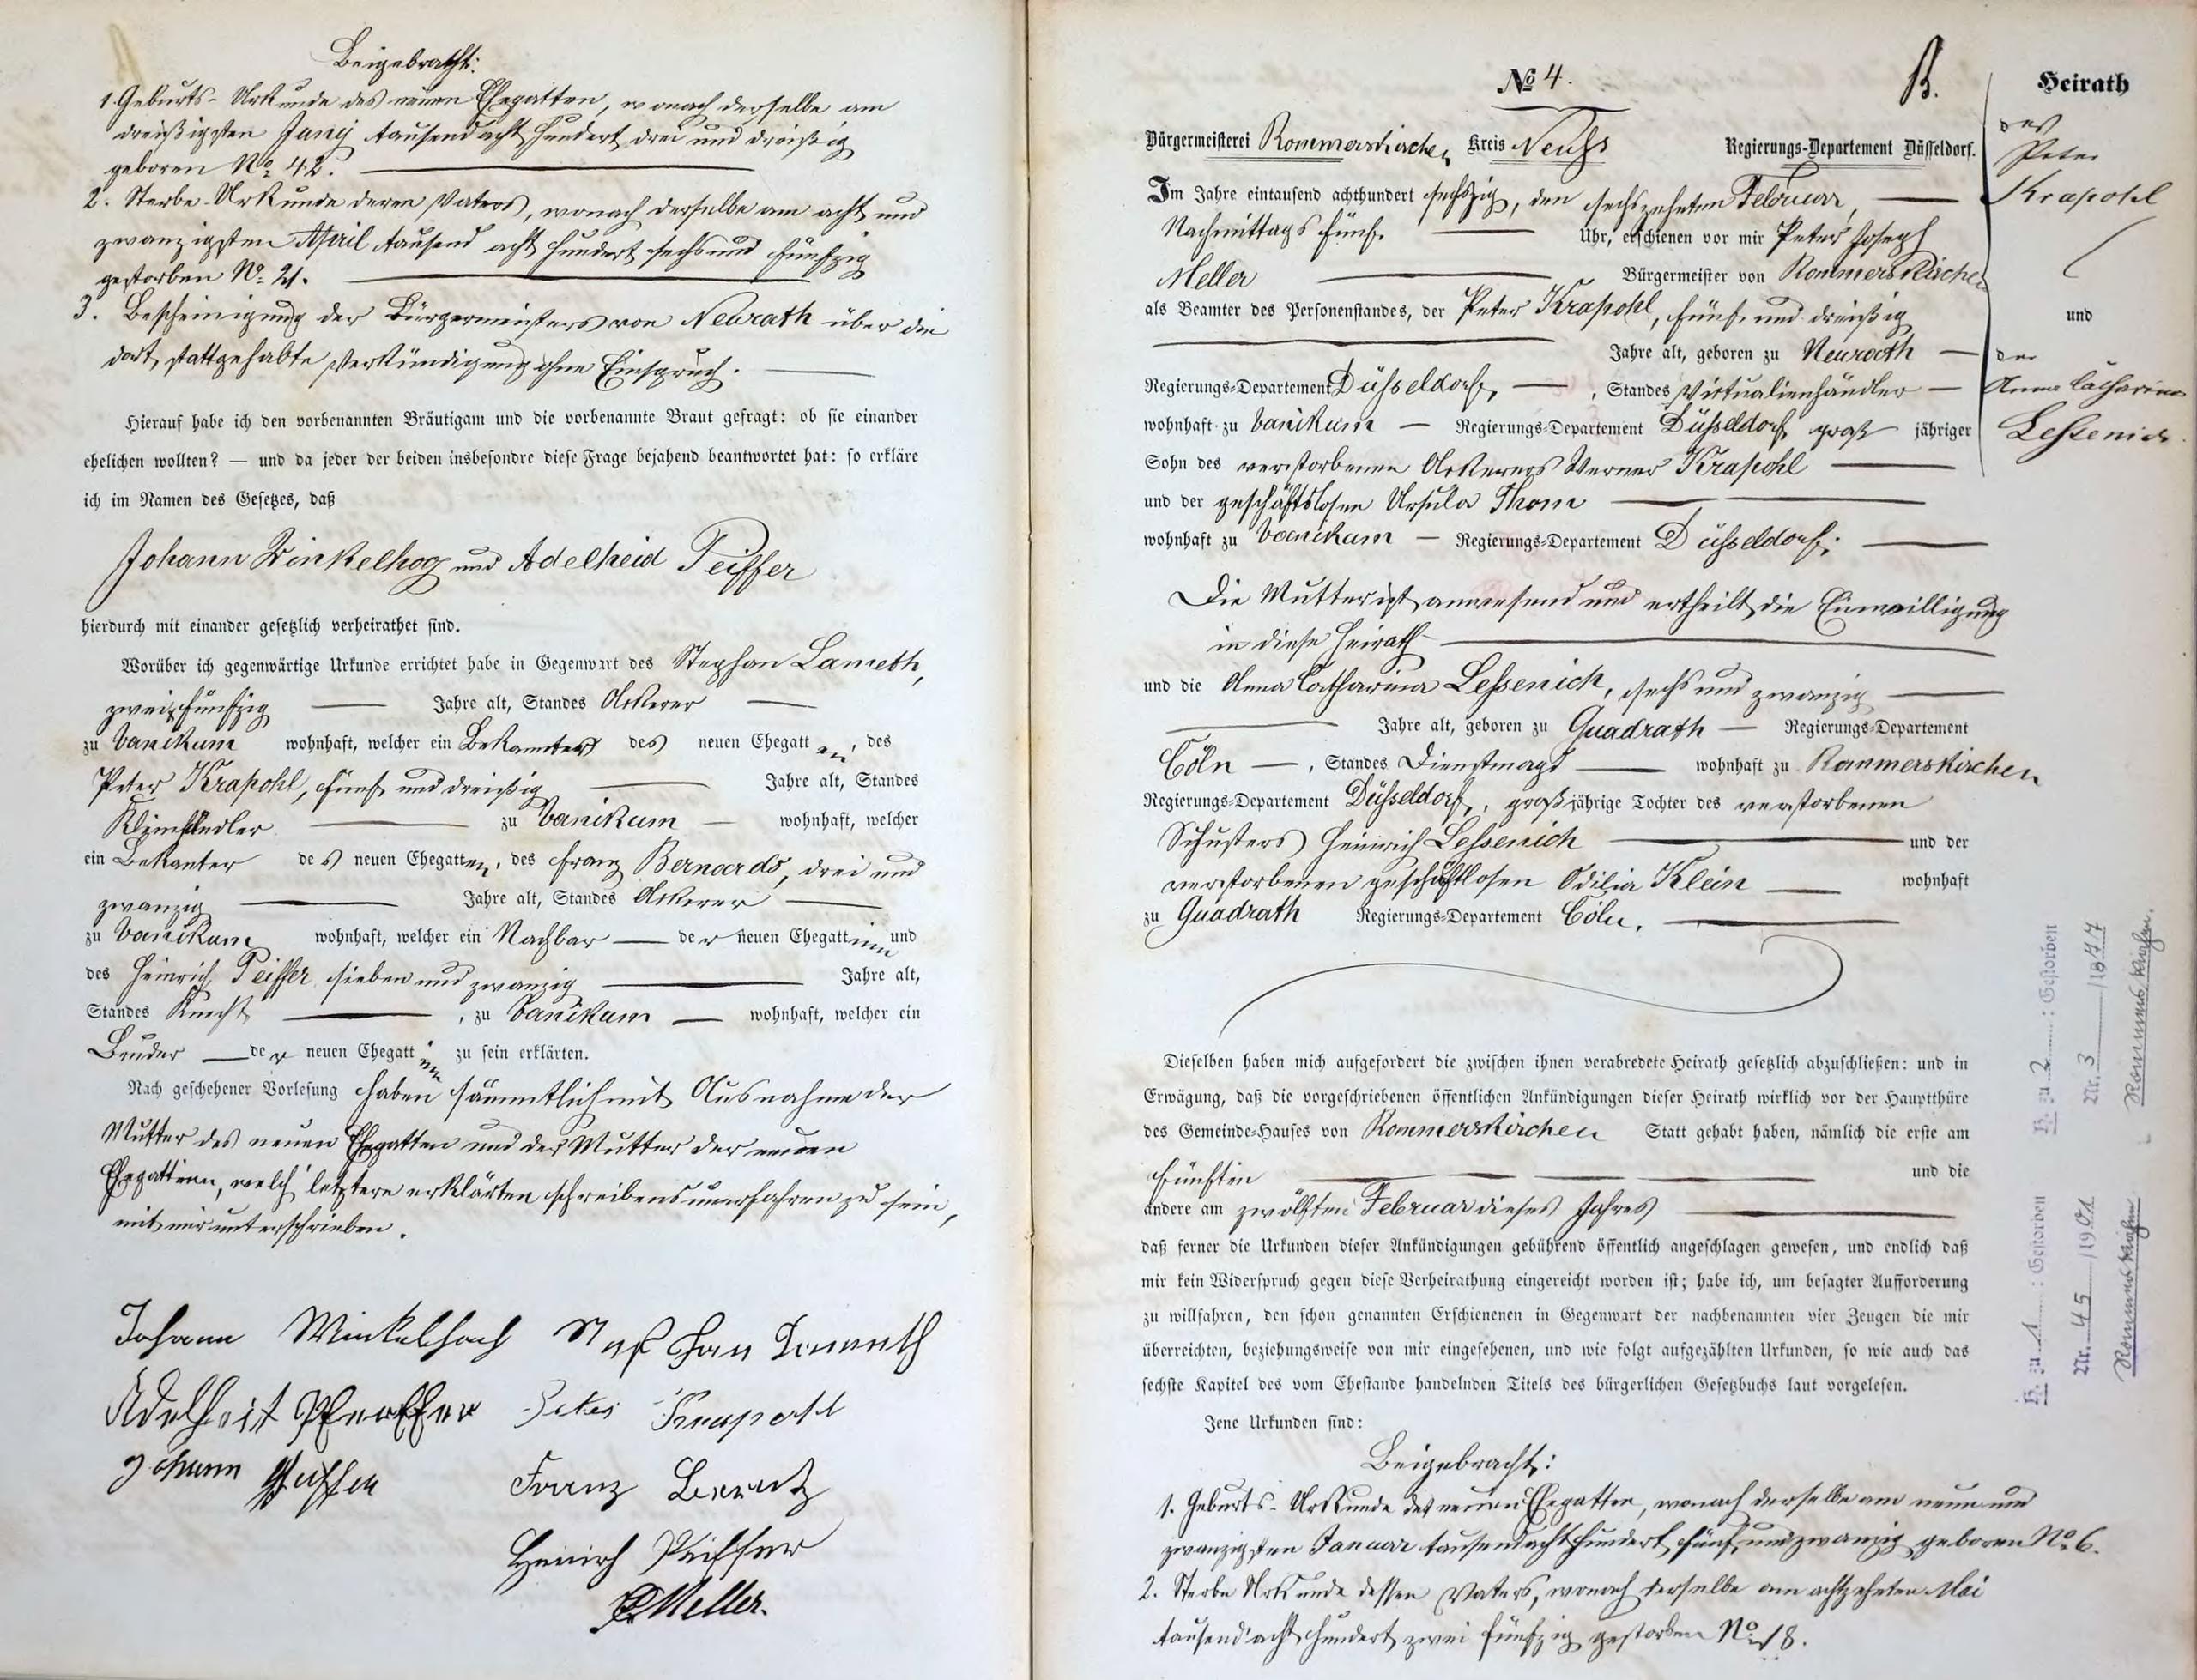 Beigebracht:
1. Geburts-Urkunde des neuen Ehegatten, wonach derselbe am
dreißigsten Juny tausend acht hundert drei und dreißig
geboren No 42.
2. Sterbe-Urkunde deren Vaters, wonach derselbe am acht und
zwanzigsten April tausend acht hundert sechs und fünfzig
gestorben No 21.
3. Bescheinigung der Bürgermeisters von Neurath über die
dort stattgehabte Verkündigung ohne Einspruch.
Hierauf habe ich den vorbenannten Bräutigam und die vorbenannte Braut gefragt: ob sie einander
ehelichen wollten? — und da jeder der beiden insbesondre diese Frage bejahend beantwortet hat: so erkläre
ich im Namen des Gesetzes, daß
Johann Winkelhog und Adelheid Peiffer
hierdurch mit einander gesetzlich verheirathet sind.
Worüber ich gegenwärtige Urkunde errichtet habe in Gegenwart des Stephan Lameth,
zwei fünfzig Jahre alt, Standes Ackerer
zu Vanikum wohnhaft, welcher ein Bekannter des neuen Ehegatten, des
Peter Krapohl, fünf und dreißig Jahre alt, Standes
Kleinhändler zu Vanikum wohnhaft, welcher
ein Bekanter des neuen Ehegatten, des Franz Bernards, drei und
zwanzig Jahre alt, Standes Ackerer
zu Vanikum wohnhaft, welcher ein Nachbar der neuen Ehegattinn und
des Heinrich Peiffer sieben und zwanzig Jahre alt,
Standes Knecht, zu Vanikum wohnhaft, welcher ein
Bruder der neuen Ehegattinn zu sein erklärten.
Nach geschehener Vorlesung haben sämmtlich mit Ausnahme der
Mutter des neuen Ehegatten und der Mutter der neuen
Ehegattinn, welch' letztere erklärten schreibensunerfahren zu sein,
mit mir unterschrieben.
Johann Winkelhoch Stephan Lameth
Adelheit Pfeiffer Peter Krapohl
Johann Peiffer Franz
Heinrich Peiffer
Meller.
No 4. B.
Bürgermeisterei Rommerskirchen Kreis Neuss Regierungs-Departement Düsseldorf.
Im Jahre eintausend achthundert sechszig, den sechszehnten Februar,
Nachmittags fünf Uhr, erschienen vor mir Peter Joseph
Meller Bürgermeister von Rommerskirchen
als Beamter des Personenstandes, der Peter Krapohl, fünf und dreißig
Jahre alt, geboren zu Neurath
Regierungs-Departement Düsseldorf, Standes Victualienhändler
wohnhaft zu Vanikum Regierungs-Departement Düsseldorf groß jähriger
Sohn des verstorbenen Ackerers Werner Krapohl
und der geschäftslosen Ursula Thom
wohnhaft zu Vanikum Regierungs-Departement Düsseldorf;
Die Mutter ist anwesend und ertheilt die Einwilligung
in diese Heirath
und die Anna Catharina Lessenich, sechs und zwanzig
Jahre alt, geboren zu Quadrath Regierungs-Departement
Cöln, Standes Dienstmagd wohnhaft zu Rommerskirchen
Regierungs-Departement Düsseldorf, großjährige Tochter des verstorbenen
Schusters Heinrich Lessenich und der
verstorbenen geschäftlosen Odilia Klein wohnhaft
zu Quadrath Regierungs-Departement Cöln.
Dieselben haben mich aufgefordert die zwischen ihnen verabredete Heirath gesetzlich abzuschließen: und in
Erwägung, daß die vorgeschriebenen öffentlichen Ankündigungen dieser Heirath wirklich vor der Hauptthüre
des Gemeinde-Hauses von Rommerskirchen Statt gehabt haben, nämlich die erste am
fünften und die
andere am zwölften Februar dieses Jahres
daß ferner die Urkunden dieser Ankündigungen gebührend öffentlich angeschlagen gewesen, und endlich daß
mir kein Widerspruch gegen diese Verheirathung eingereicht worden ist; habe ich, um besagter Aufforderung
zu willfahren, den schon genannten Erschienenen in Gegenwart der nachbenannten vier Zeugen die mir
überreichten, beziehungsweise von mir eingesehenen, und wie folgt aufgezählten Urkunden, so wie auch das
sechste Kapitel des vom Ehestande handelnden Titels des bürgerlichen Gesetzbuchs laut vorgelesen.
Jene Urkunden sind:
Beigebracht:
1. Geburts-Urkunde des neuen Ehegatten, wonach derselbe am neun und
zwanzigsten Januar tausend acht hundert fünf und zwanzig geboren No 6.
2. Sterbe Urkunde dessen Vaters, wonach derselbe am achtzehnten Mai
tausend acht hundert zwei fünfzig gestorben No 18.
Heirath
des
Peter
Krapohl
und
der
Anna Catharina
Lessenich
H. zu 2 : Gestorben
Nr. 3 /1877
Rommerskirchen.
H. zu 1 : Gestorben
Nr. 45 /1901
Rommerskirchen